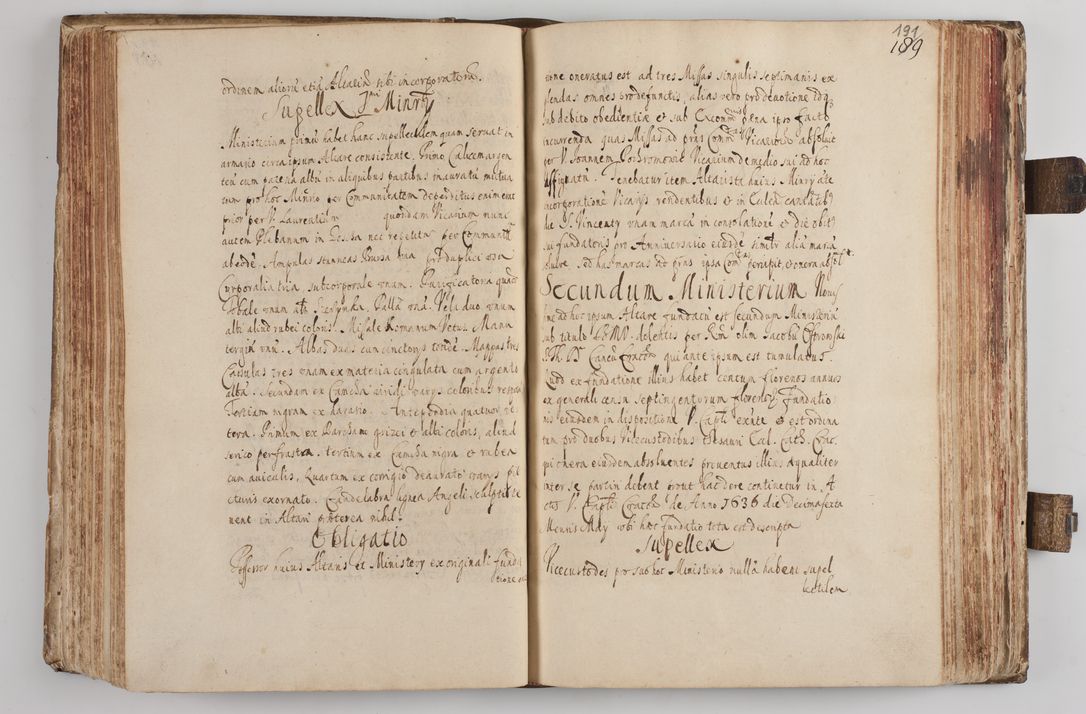 ordinem aliorũ etiã Altariũ sibi incorporatorũ.
Supellex Jmi Minrÿ
Ministerium primũ habet hanc supellectilem quam servat in
armario circa ipsum Altare consistente. Primo Calicem argen
teũ cum patena albũ in aliquibus partibus inauratũ
cum pro hoc Minrio per Communitatem deperditus enim erat
prior per V. Laurentium quondam Vicarium nunc
autem Plebanum in nec repetitur per Communitẽ
ab eode. Ampulas stanneas Bursa una pro duplici usu
Corporalia tria subcorporale unum. Purificatoria quatuor
unum als Palla una. Vela duo unum
albi aliud rubei coloris. Missale Romanum Vetus. Manu
tergiũ unũ. Albas duas cum cinctorys totidẽ. Mappas tres
Casulas tres unam ex materia cingulata cum argento
albã. Secundam ex Camcha viridi varys coloribus
Tertiam nigram ex hagasio. Antependia quatuor
Primum ex grizei et albi coloris, aliud
serico tertium ex Camcha nigra et rubea
cum aviculis, Quartum ex corrigio deaurato varys pic
turis exornato. Candelabra lignea Angeli sculpti
nent in Altari prẽterea nihil.
Obligatio
Possessor huius Altaris et Ministerÿ ex originali funda
tione
191
189
tione oneratus est ad tres Missas singulis septimanis ex
plendas omnes pro defunctis, alias vero pro devotione idq
sub debito obedientiæ et sub Excommnis pæna ipso facto
incurrenda quas Missas ad prñs Commtas Vicariorũ absolvit
per V. Joannem Vicarium de medio sui ad hoc
assignatũ. Tenebatur item Altarista huius Minrÿ
incorporatione Vicarÿs residentibus et in
die S. Vincenty unam marcã in consolationẽ et die obitꝰ
sui fundatoris pro Anniversario eiusdẽ simlr aliã marcã
solvere, sed has marcas ad prñs ipsa Commtas percipit, et onera absolt.
Secundum Ministerium Novis
sime ad hoc ipsum Altare fundatũ est secundum Ministeriũ
sub titulo B.V.M. dolentis per Rm olim Jacobũ Ostrowski
Canc Cracen qui ante ipsum est tumulatus.
Quod ex fundatione illius habet centum florenos annuos
ex generali censu septingentorum florenorũ. Fundatio
nis eiusdem in dispositione V. Captli existẽte et est ordina
tum pro duobus Vicecustodibus thesauri Ecl. Cath. Crac.
qui onera eiusdem absolventes proventus illius æqualiter
inter se partiri debent prout hac de re continetur in A
ctis V. Captli Cracen de Anno 1636 die decima sexta
Mensis May ubi hæc fundatio tota est descripta
Supellex
Vicecustodes pro suo hoc Ministerio nullã habent supel
lectilem